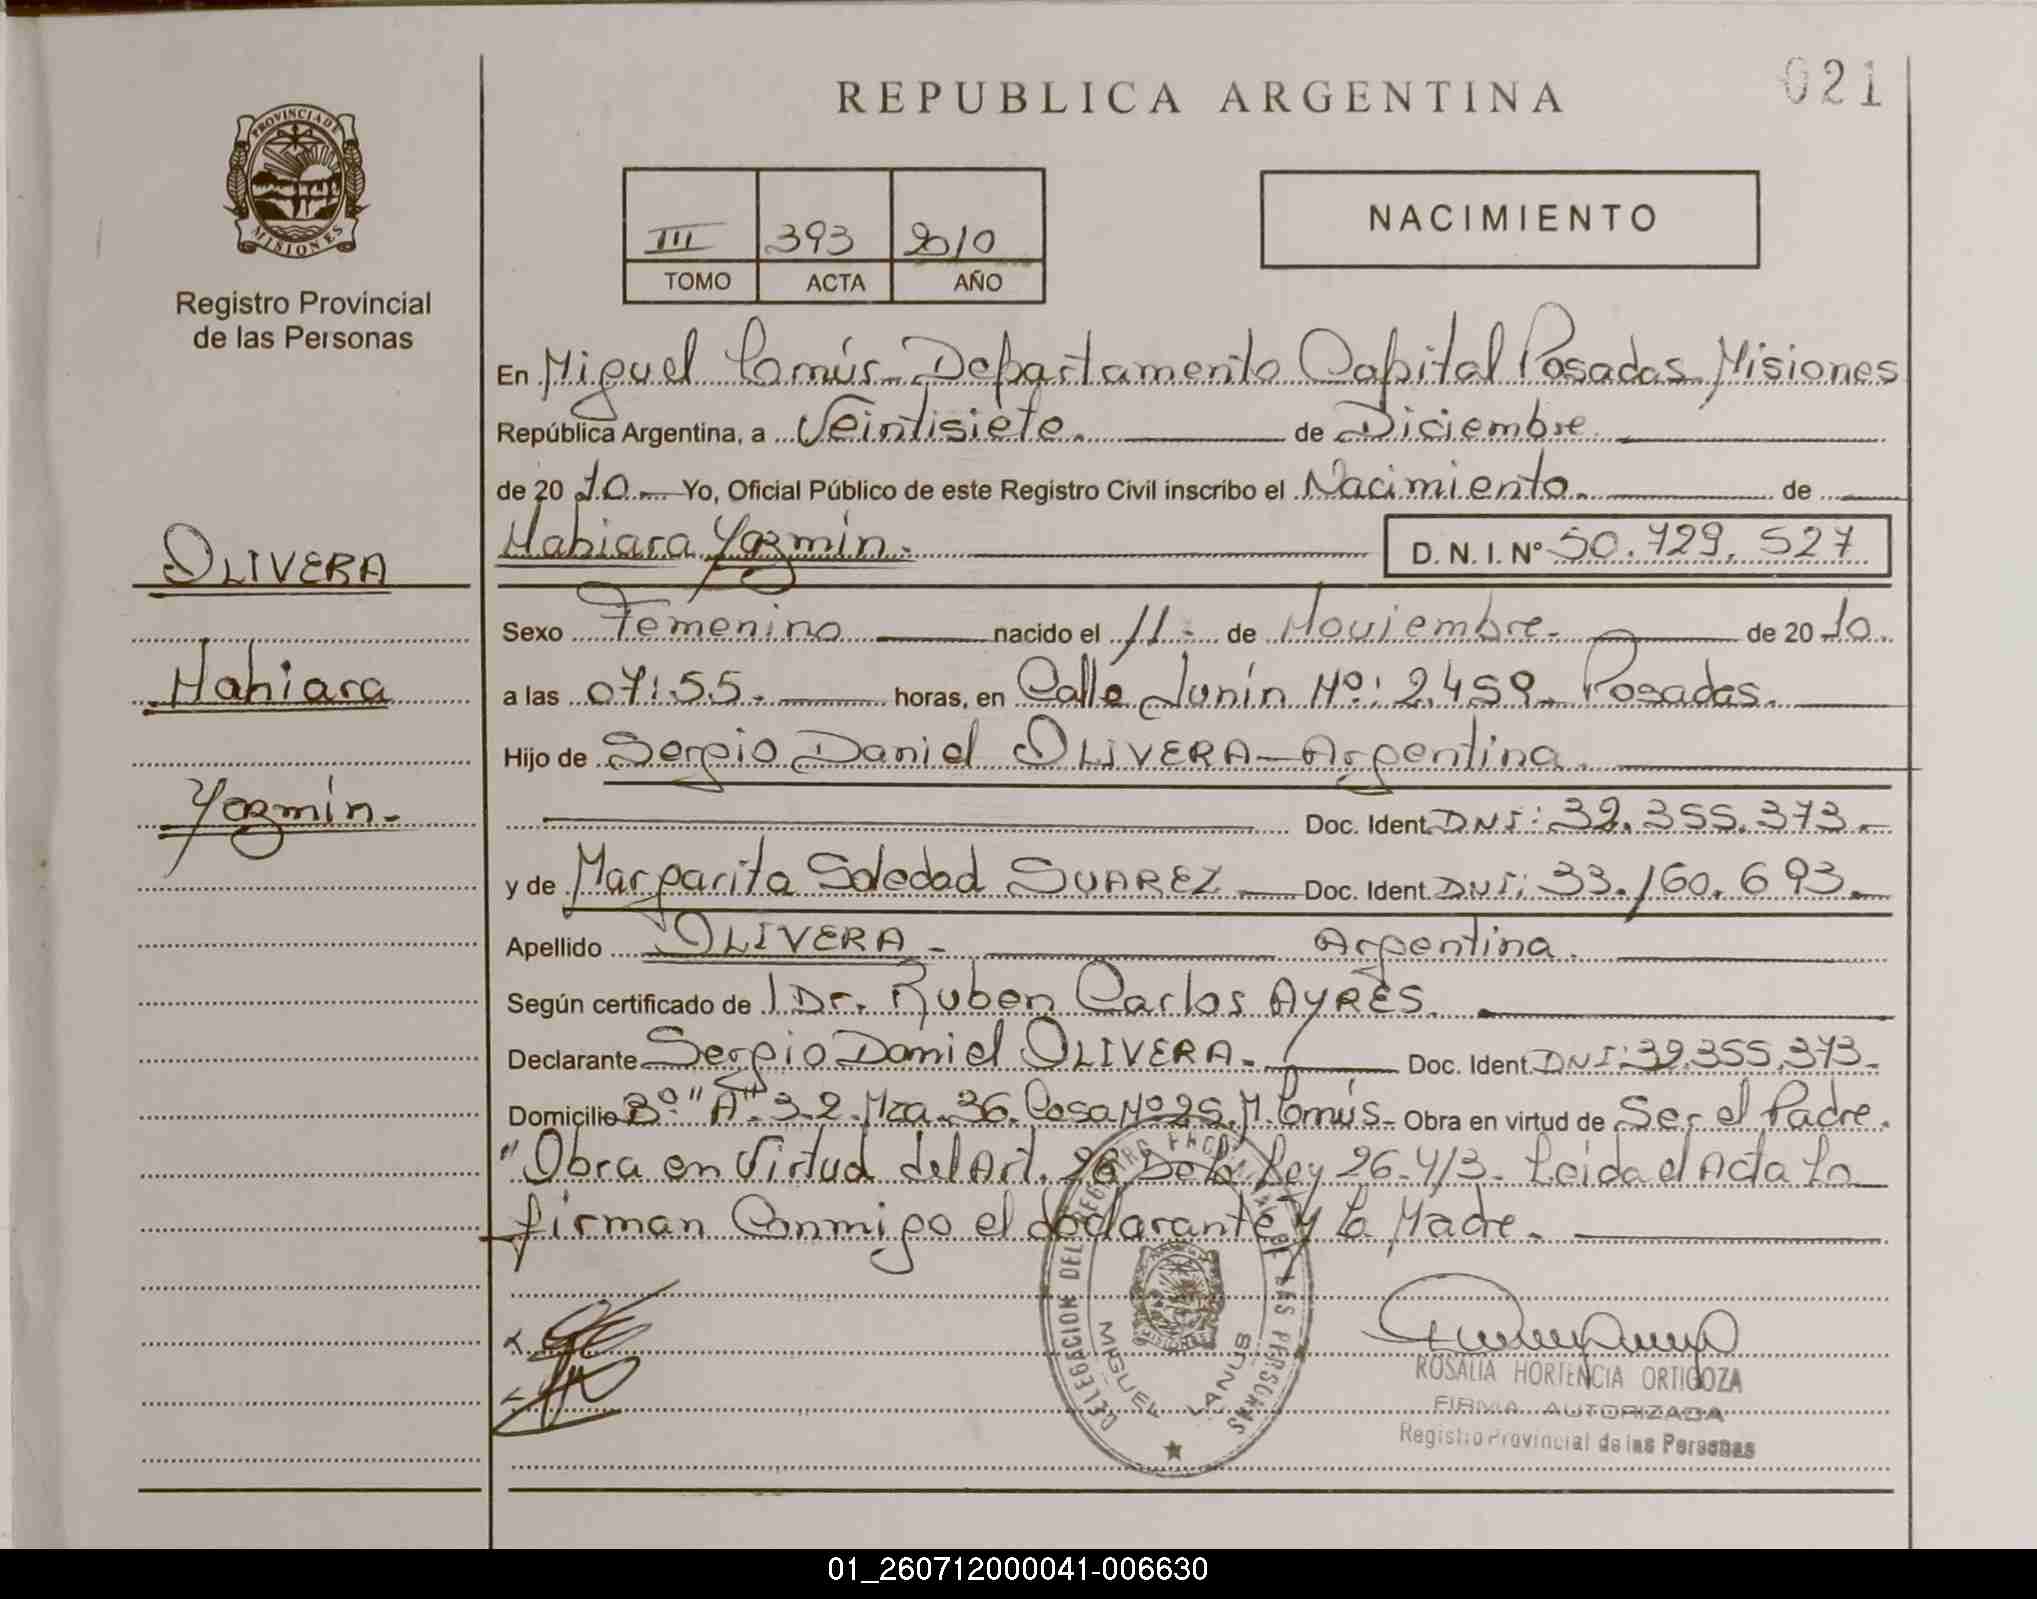 021
REPUBLICA ARGENTINA
PROVINCIA DE
MISIONES
Registro Provincial
de las Personas
III 393 2010
TOMO ACTA AÑO
NACIMIENTO
En Miguel Lanús - Departamento Capital Posadas Misiones
República Argentina, a Veintisiete. de Diciembre
de 20 10 Yo, Oficial Público de este Registro Civil inscribo el Nacimiento. de
Nahiara Yazmín. D. N. I. Nº 50.729.527
OLIVERA
Sexo Femenino nacido el 11 - de Noviembre - de 20 10.
Nahiara
a las 07:55. horas, en Calle Junín Nº: 2.459 - Posadas.
Hijo de Sergio Daniel OLIVERA - Argentina.
Yazmín -
Doc. Ident. DNI: 39.355.373 -
y de Margarita Soledad SUAREZ - Doc. Ident. DNI: 33.160.693 -
Apellido OLIVERA - Argentina.
Según certificado de Dr. Ruben Carlos AYRES.
Declarante Sergio Daniel OLIVERA - Doc. Ident. DNI: 39.355.373 -
Domicilio Bº "A" 3-2 - Mza. 36. Casa Nº 25. M. Lanús - Obra en virtud de Ser el Padre.
"Obra en Virtud del Art. 28 De la Ley 26.413 - Leída el Acta La
firman Conmigo el declarante y La Madre.
DELEGACION DEL REGISTRO PROVINCIAL DE LAS PERSONAS
MIGUEL LANUS
ROSALIA HORTENCIA ORTIGOZA
FIRMA AUTORIZADA
Registro Provincial de las Personas
01_260712000041-006630